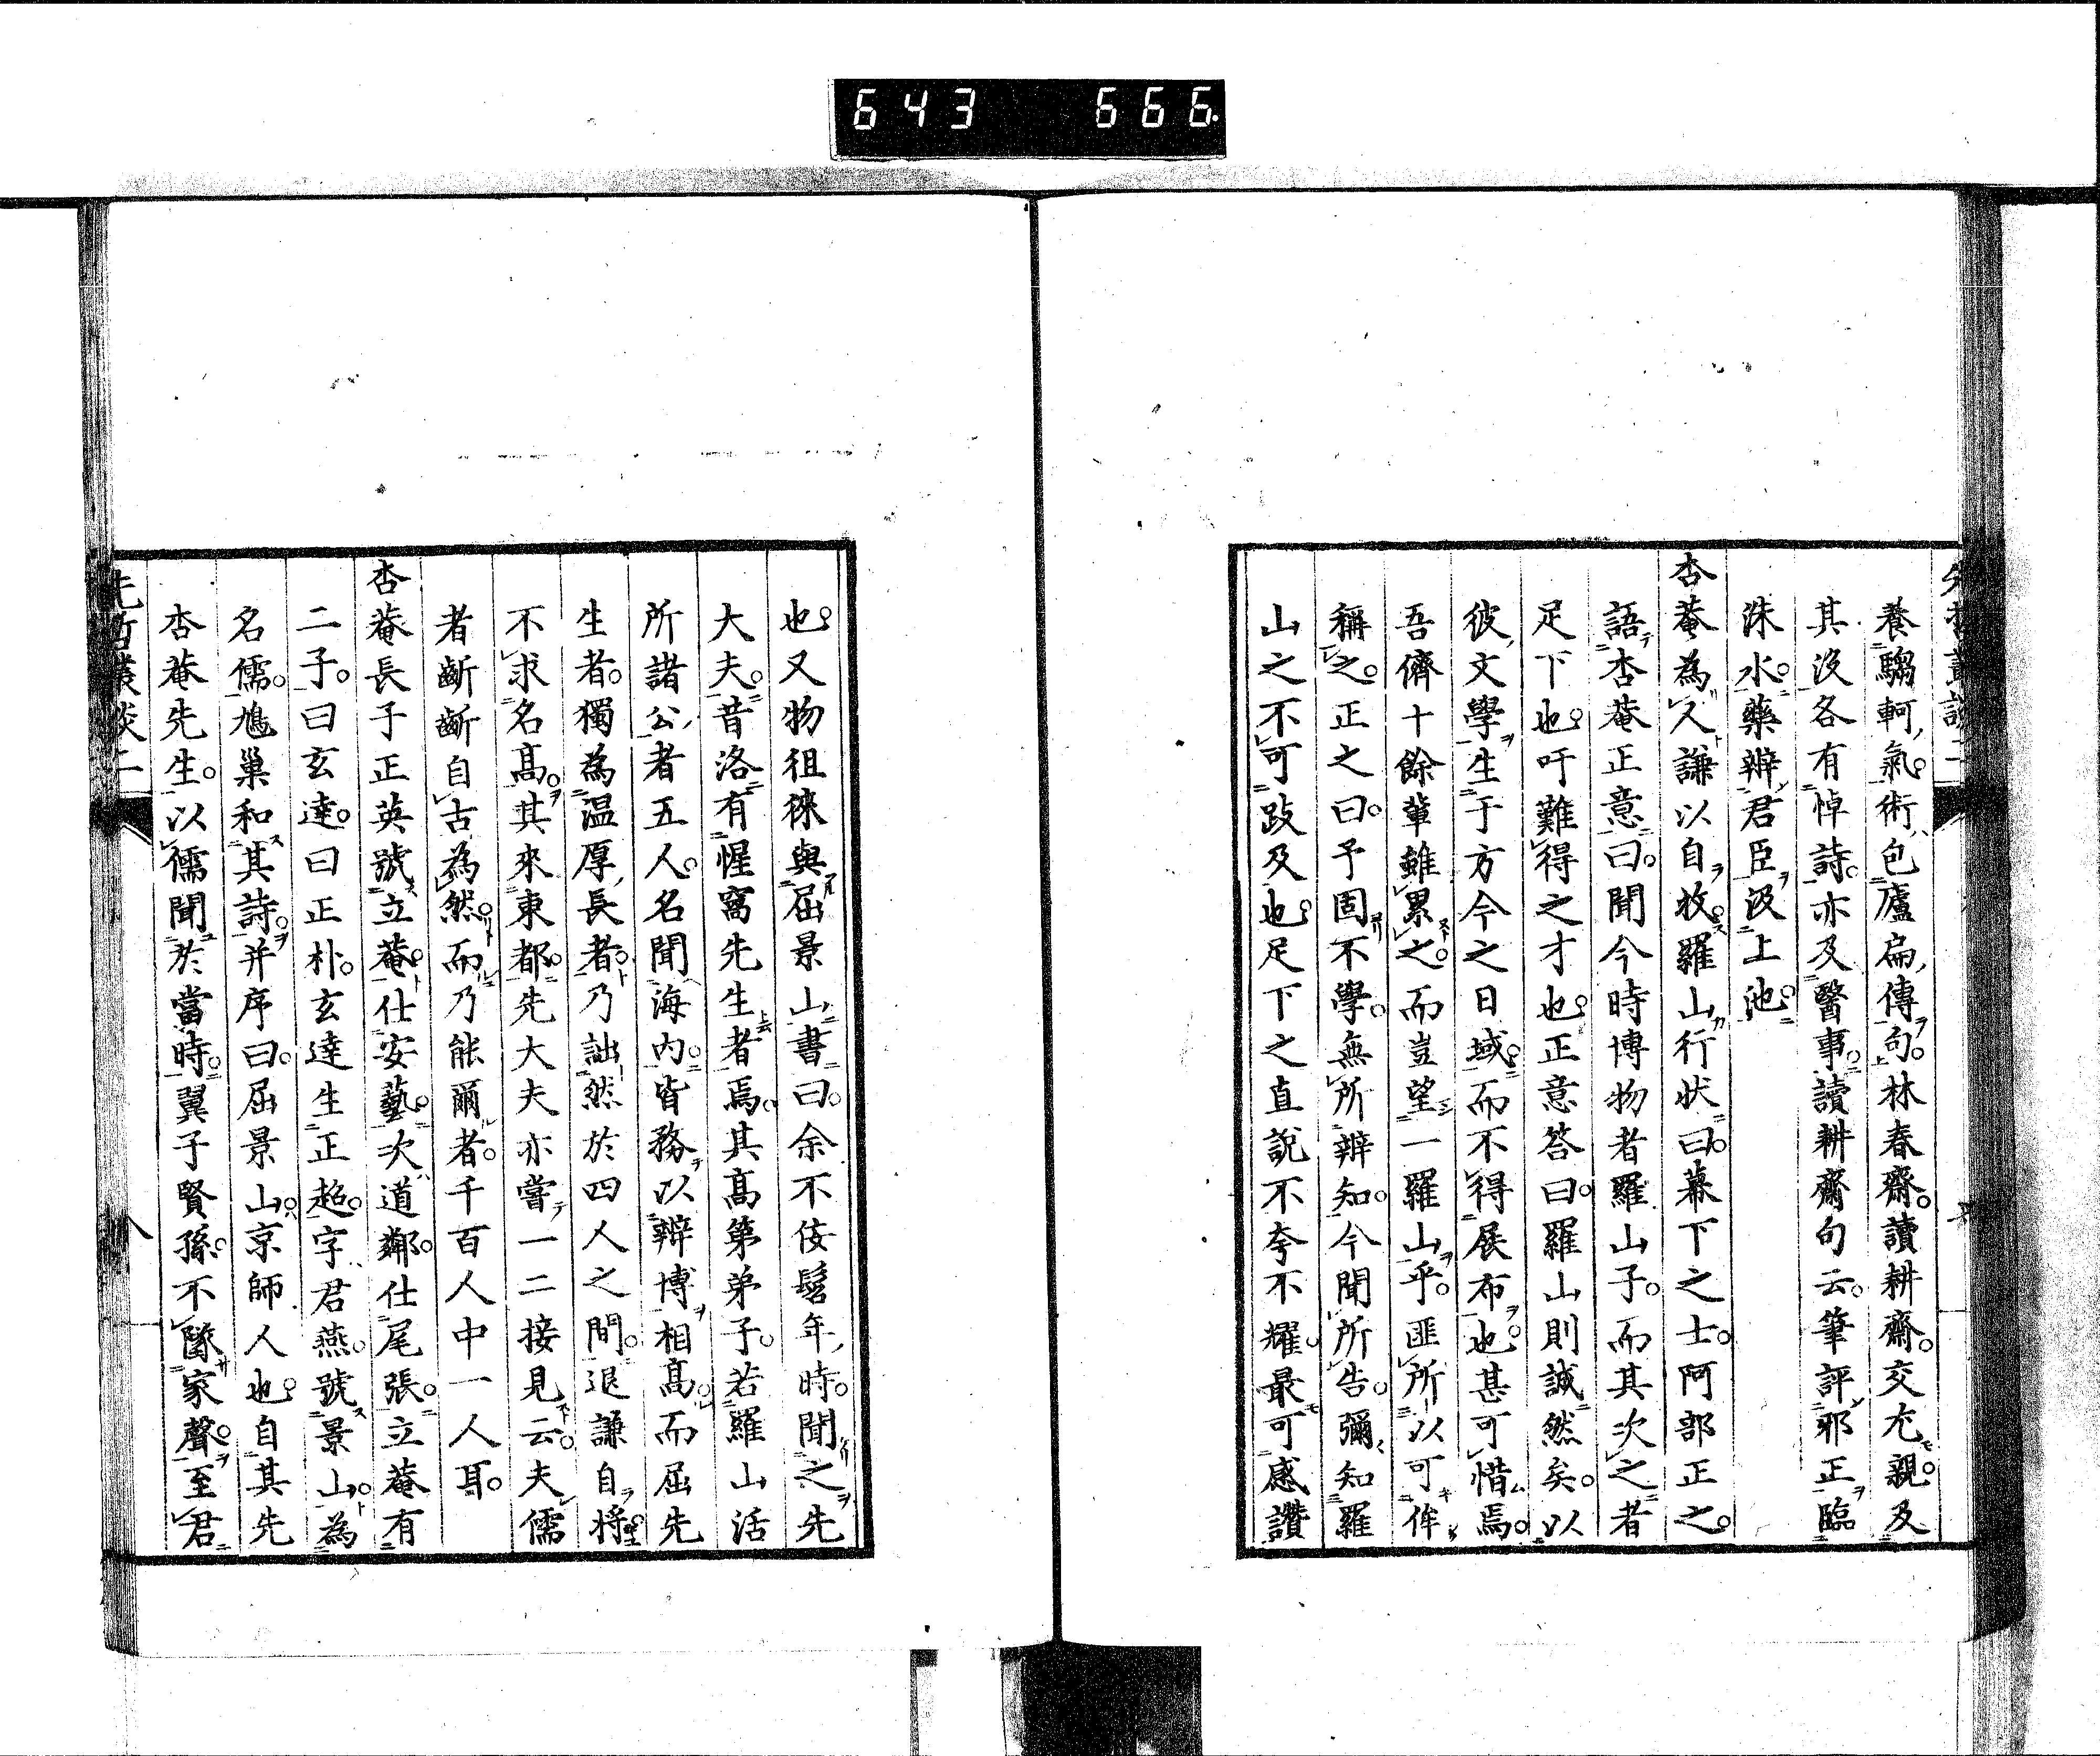 643 666
養騶軻、氣。術包廬扁、傳句。林春齋。讀耕齋。交尤親。及
其沒各有悼詩。亦及醫事。讀耕齋句云。筆評邪正臨
洙水。藥辨君臣汲上池。
杏菴為人謙以自牧。羅山行状曰。幕下之士。阿部正之。
語杏菴正意曰。聞今時博物者羅山子。而其次之者
足下也。吁難得之才也。正意答曰。羅山則誠然矣。以
彼文學、生于方今之日域。而不得展布也。甚可惜焉。
吾儕十餘輩雖累之。而豈望一羅山乎。匪所以可侔
稱之。正之曰。予固不學。無所辨知。今聞所告。彌知羅
山之不可跂及也。足下之直說不夸不耀。最可感讚
也。又物徂徠與屈景山書曰。余不佞髫年、時。聞之先
大夫。昔洛有惺窩先生者焉。其高第弟子。若羅山活
所諸公、者五人。名聞海內。皆務以辯博相高。而屈先
生者。獨為温厚、長者。乃詘然於四人之間。退謙自將。
不求名高。其來東都。先大夫亦嘗一二接見云。夫儒
者齗齗自古為然。而乃能爾者。千百人中一人耳。
杏菴長子正英號立菴。仕安藝。次道鄰。仕尾張。立菴有
二子。曰玄達。曰正朴。玄達生正超。字君燕。號景山。為
名儒。鳩巢和其詩。并序曰。屈景山。京師人也。自其先
杏菴先生。以儒聞於當時。翼子賢孫。不墜家聲。至君
先哲叢談二
八